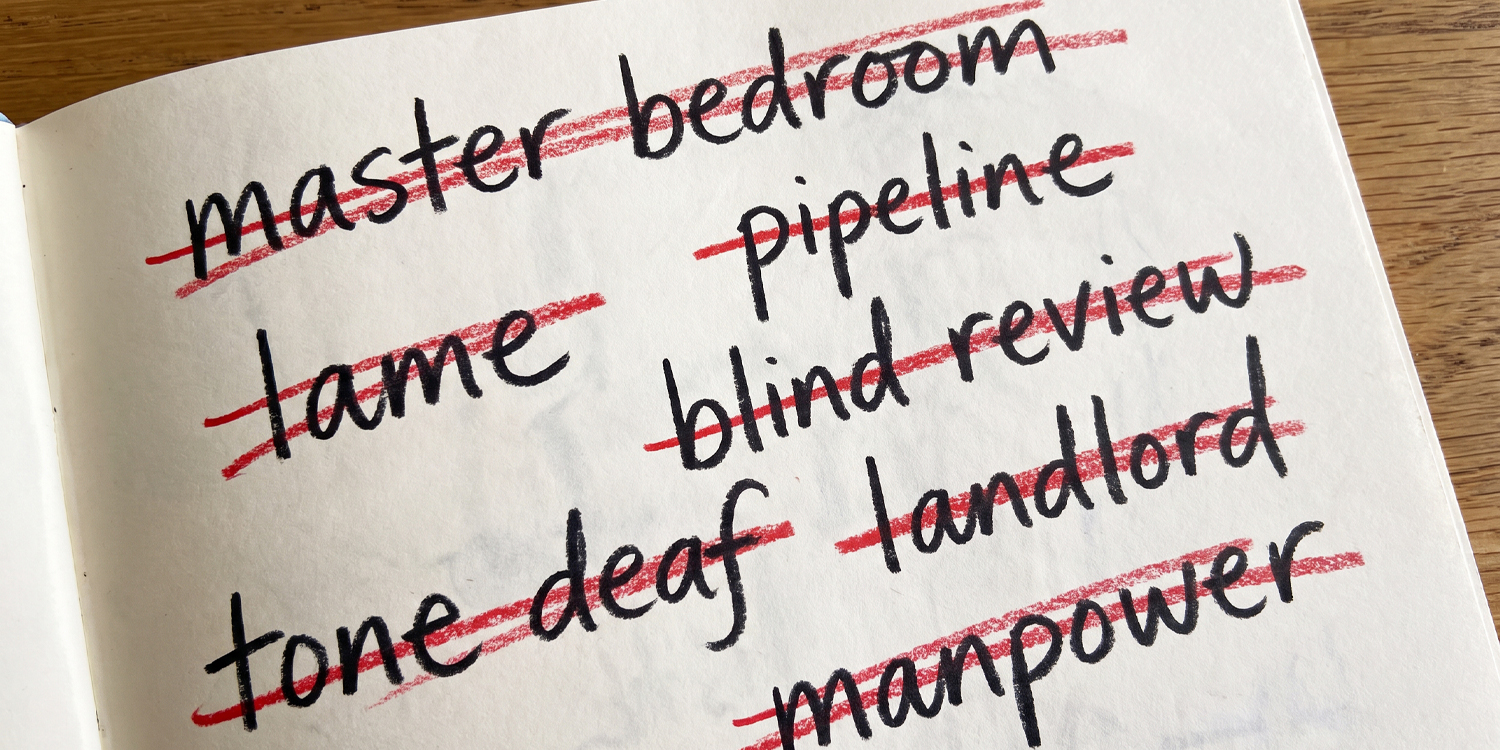 master bedroom
pipeline
lame
blind review
landlord
tone deaf
manpower